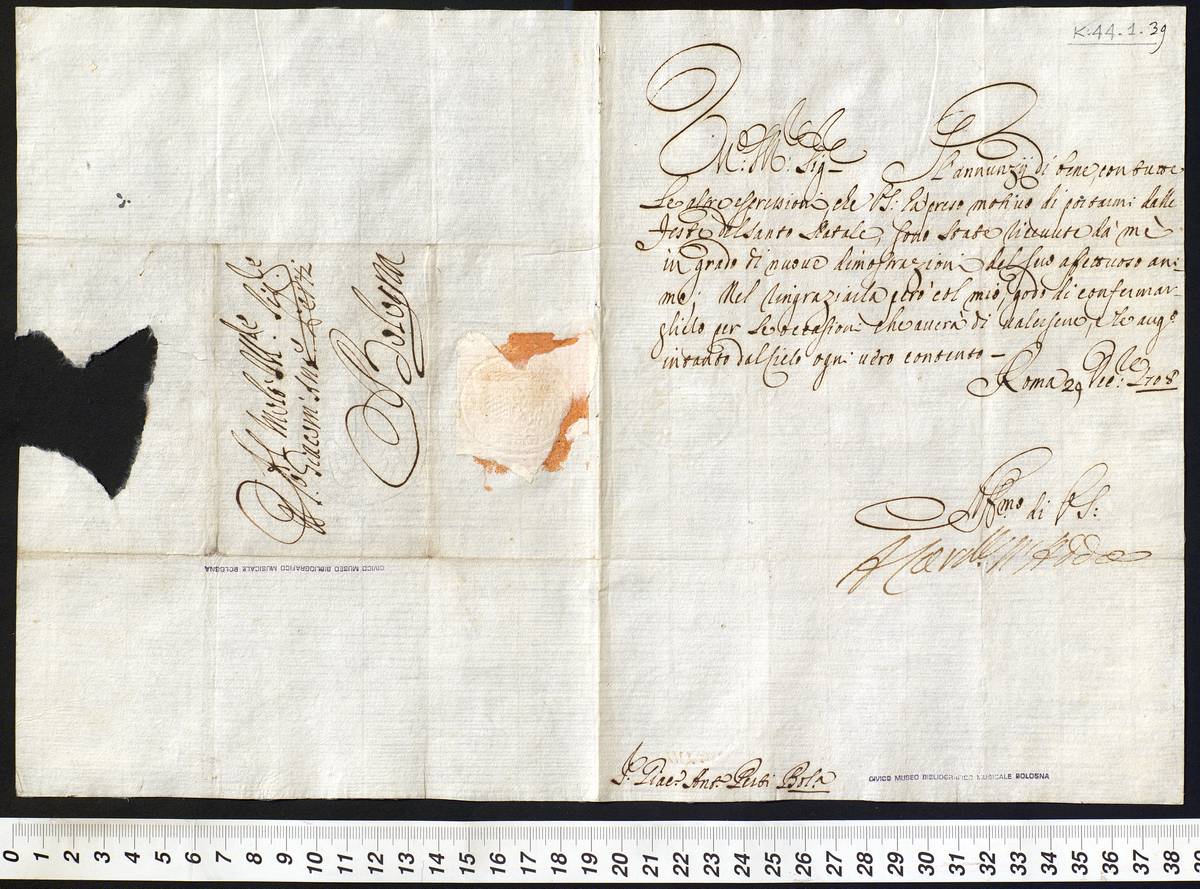 K.44.1.39
M.to Ill.re Sig.re
Gl'annunzij di bene, con tutte
le altre espressioni, che V.S. hà preso motivo di portarmi dalle
Feste del Santo Natale, sono state ricevute dà mè
in grado di nuove dimostrazioni del suo affettuoso ani-
mo; Nel ringraziarla però col mio, godo di confermar-
glielo per le occasioni che averà di valersene, e le aug.o
intanto dal Cielo ogni vero contento.
Roma 29 Xbre 1708
di V.S.
Il Card.
S.r Giac.o Ant.o Perti Bol.a
CIVICO MUSEO BIBLIOGRAFICO MUSICALE BOLOGNA
Sig.re
Giacom' Ant.o Perti
Bologna
CIVICO MUSEO BIBLIOGRAFICO MUSICALE BOLOGNA
0 1 2 3 4 5 6 7 8 9 10 11 12 13 14 15 16 17 18 19 20 21 22 23 24 25 26 27 28 29 30 31 32 33 34 35 36 37 38